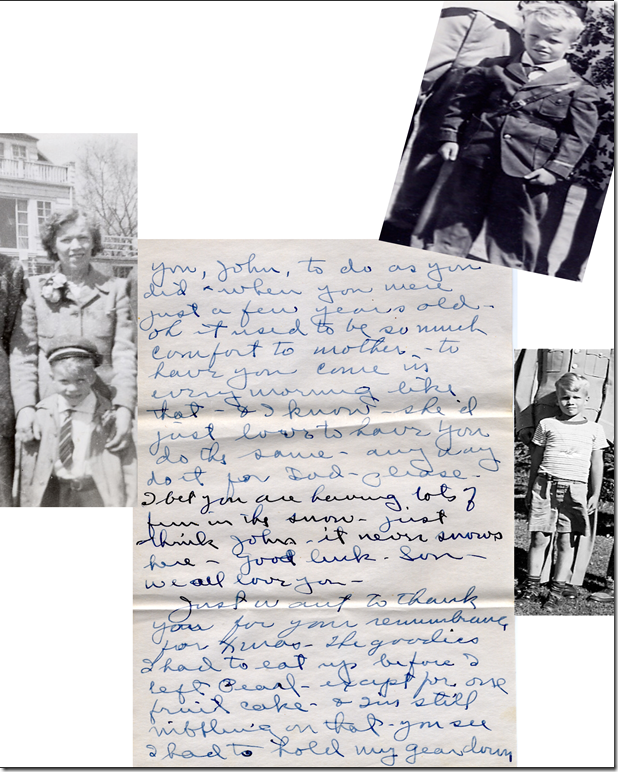 you, John, to do as you
did - when you were
just a few years old -
oh it used to be so much
comfort to mother - to
have you come in
every morning like
that - & I know - she'd
just love to have you
do the same - any day
do it for Dad - please -
I bet you are having lots of
fun in the snow - just
think John - it never snows
here - Good luck - Son -
we all love you -
Just want to thank
you for your remembrance
for Xmas - the goodies
I had to eat up before I
left Pearl - except for one
fruit cake - & I'm still
nibbling on that - you see
I had to hold my gear down